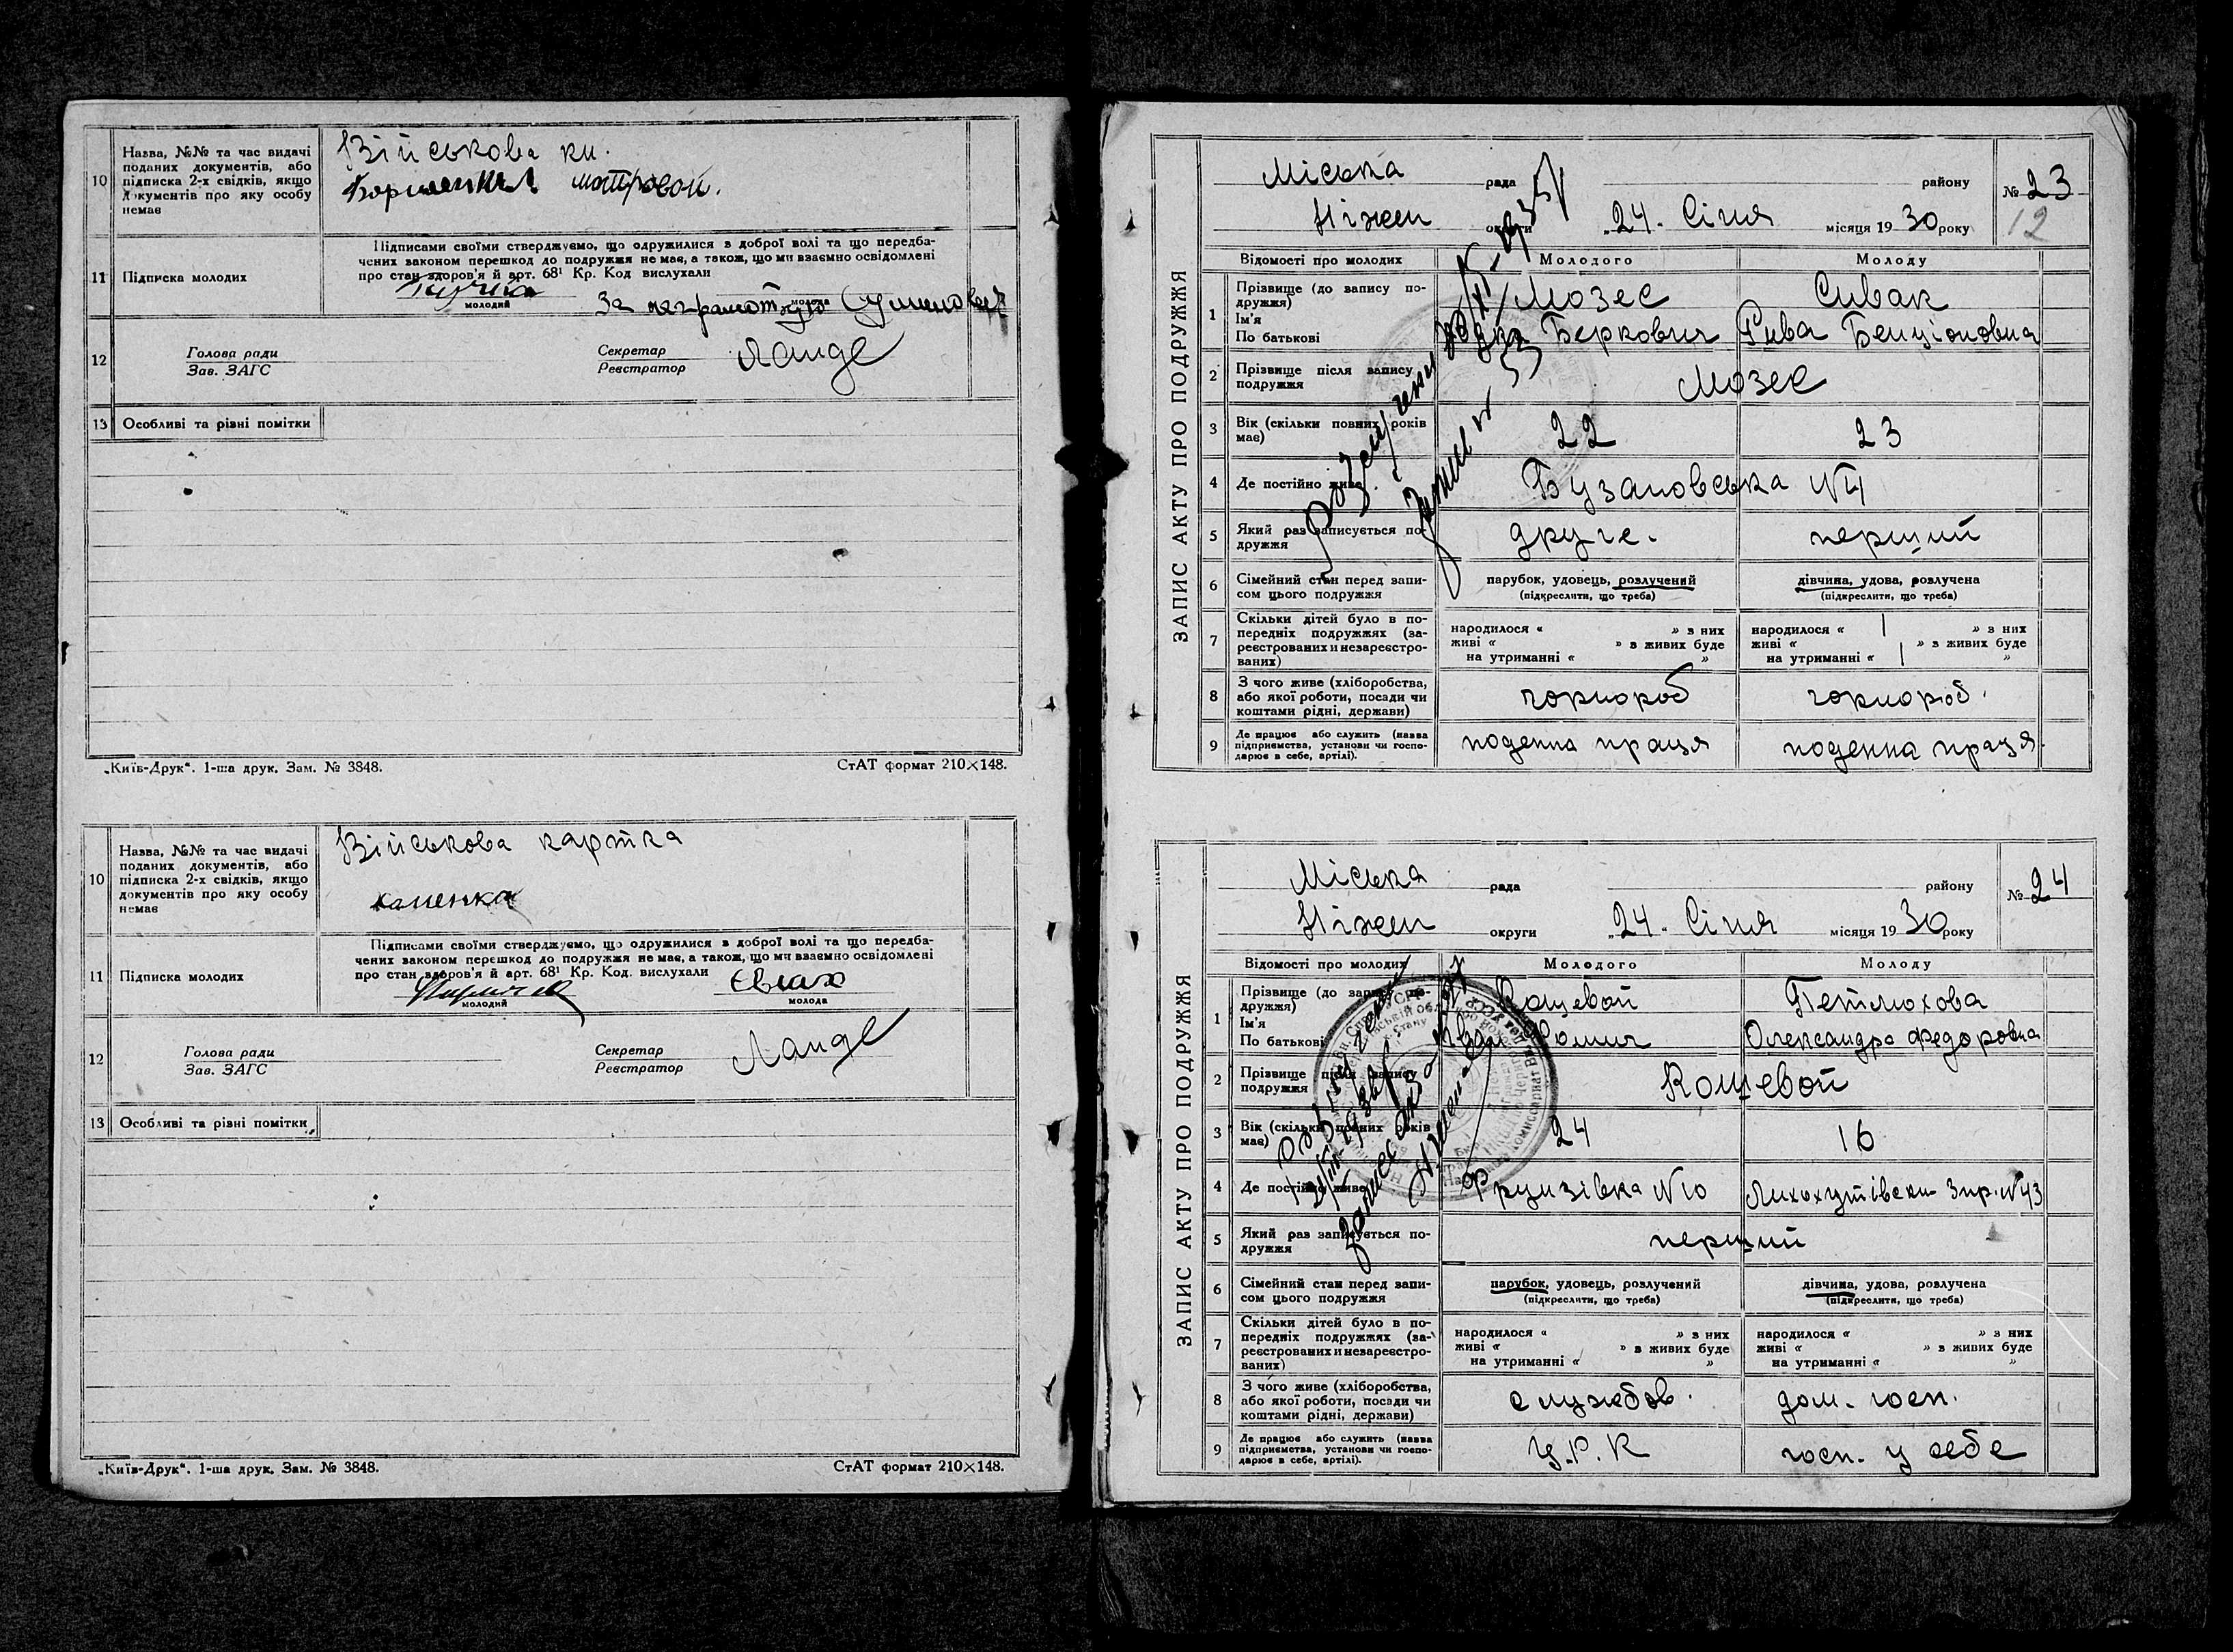 10
Назва, №№ та час видачі
поданих документів, або
підписка 2-х свідків, якщо
документів про яку особу
немає
Військова кн.
матровой.
11
Підписка молодих
Підписами своїми стверджуємо, що одружилися з доброї волі та що передба-
чених законом перешкод до подружжя не має, а також, що ми взаємно освідомлені
про стан здоров'я й арт. 68¹ Кр. Код вислухали
молодий
молода
За неграмотную
12
Голова ради
Зав. ЗАГС
Секретар
Реєстратор
Ланде
13
Особливі та різні помітки
„Київ-Друк“. 1-ша друк. Зам. № 3848.
СтАТ формат 210×148.
10
Назва, №№ та час видачі
поданих документів, або
підписка 2-х свідків, якщо
документів про яку особу
немає
Військова картка
11
Підписка молодих
Підписами своїми стверджуємо, що одружилися з доброї волі та що передба-
чених законом перешкод до подружжя не має, а також, що ми взаємно освідомлені
про стан здоров'я й арт. 68¹ Кр. Код. вислухали
молодий
молода
12
Голова ради
Зав. ЗАГС
Секретар
Реєстратор
Ланде
13
Особливі та різні помітки
„Київ-Друк“. 1-ша друк. Зам. № 3848.
СтАТ формат 210×148.
ЗАПИС АКТУ ПРО ПОДРУЖЖЯ
Міська рада
району
№ 23
12
Ніжен округи
„24. Січня місяця 1930 року
Відомості про молодих
Молодого
Молоду
1
Прізвище (до запису по-
дружжя)
Ім'я
По батькові
Мозес
Беркович
Сивак
Рива Бенціоновна
2
Прізвище після запису
подружжя
Мозес
3
Вік (скільки повних років
має)
22
23
4
Де постійно живе
Бузановська №4
5
Який раз записується по-
дружжя
друге.
перший
6
Сімейний стан перед запи-
сом цього подружжя
парубок, удовець, розлучений
(підкреслити, що треба)
дівчина, удова, розлучена
(підкреслити, що треба)
7
Скільки дітей було в по-
передніх подружжях (за-
реєстрованих и незареєстро-
ваних)
народилося “ » з них
живі “ » з живих буде
на утриманні “ »
народилося “ » з них
живі “ » з живих буде
на утриманні “ »
8
З чого живе (хліборобства,
або якої роботи, посади чи
коштами рідні, держави)
чорнороб
чорнороб.
9
Де працює або служить (назва
підприємства, установи чи госпо-
дарює в себе, артілі).
поденна праця
поденна праця.
ЗАПИС АКТУ ПРО ПОДРУЖЖЯ
Міська рада
району
№ 24
Ніжен округи
„24. Січня місяця 1930 року
Відомості про молодих
Молодого
Молоду
1
Прізвище (до запису по-
дружжя)
Ім'я
По батькові
Кощевой
Іван Хомич
Петлюхова
Олександра Федоровна
2
Прізвище після запису
подружжя
Кощевой
3
Вік (скільки повних років
має)
24
16
4
Де постійно живе
Фрунзівка №10
№43
5
Який раз записується по-
дружжя
перший
6
Сімейний стан перед запи-
сом цього подружжя
парубок, удовець, розлучений
(підкреслити, що треба)
дівчина, удова, розлучена
(підкреслити, що треба)
7
Скільки дітей було в по-
передніх подружжях (за-
реєстрованих и незареєстро-
ваних)
народилося “ » з них
живі “ » з живих буде
на утриманні “ »
народилося “ » з них
живі “ » з живих буде
на утриманні “ »
8
З чого живе (хліборобства,
або якої роботи, посади чи
коштами рідні, держави)
службов.
дом. госп.
9
Де працює або служить (назва
підприємства, установи чи госпо-
дарює в себе, артілі).
Ц.Р.К
госп. у себе